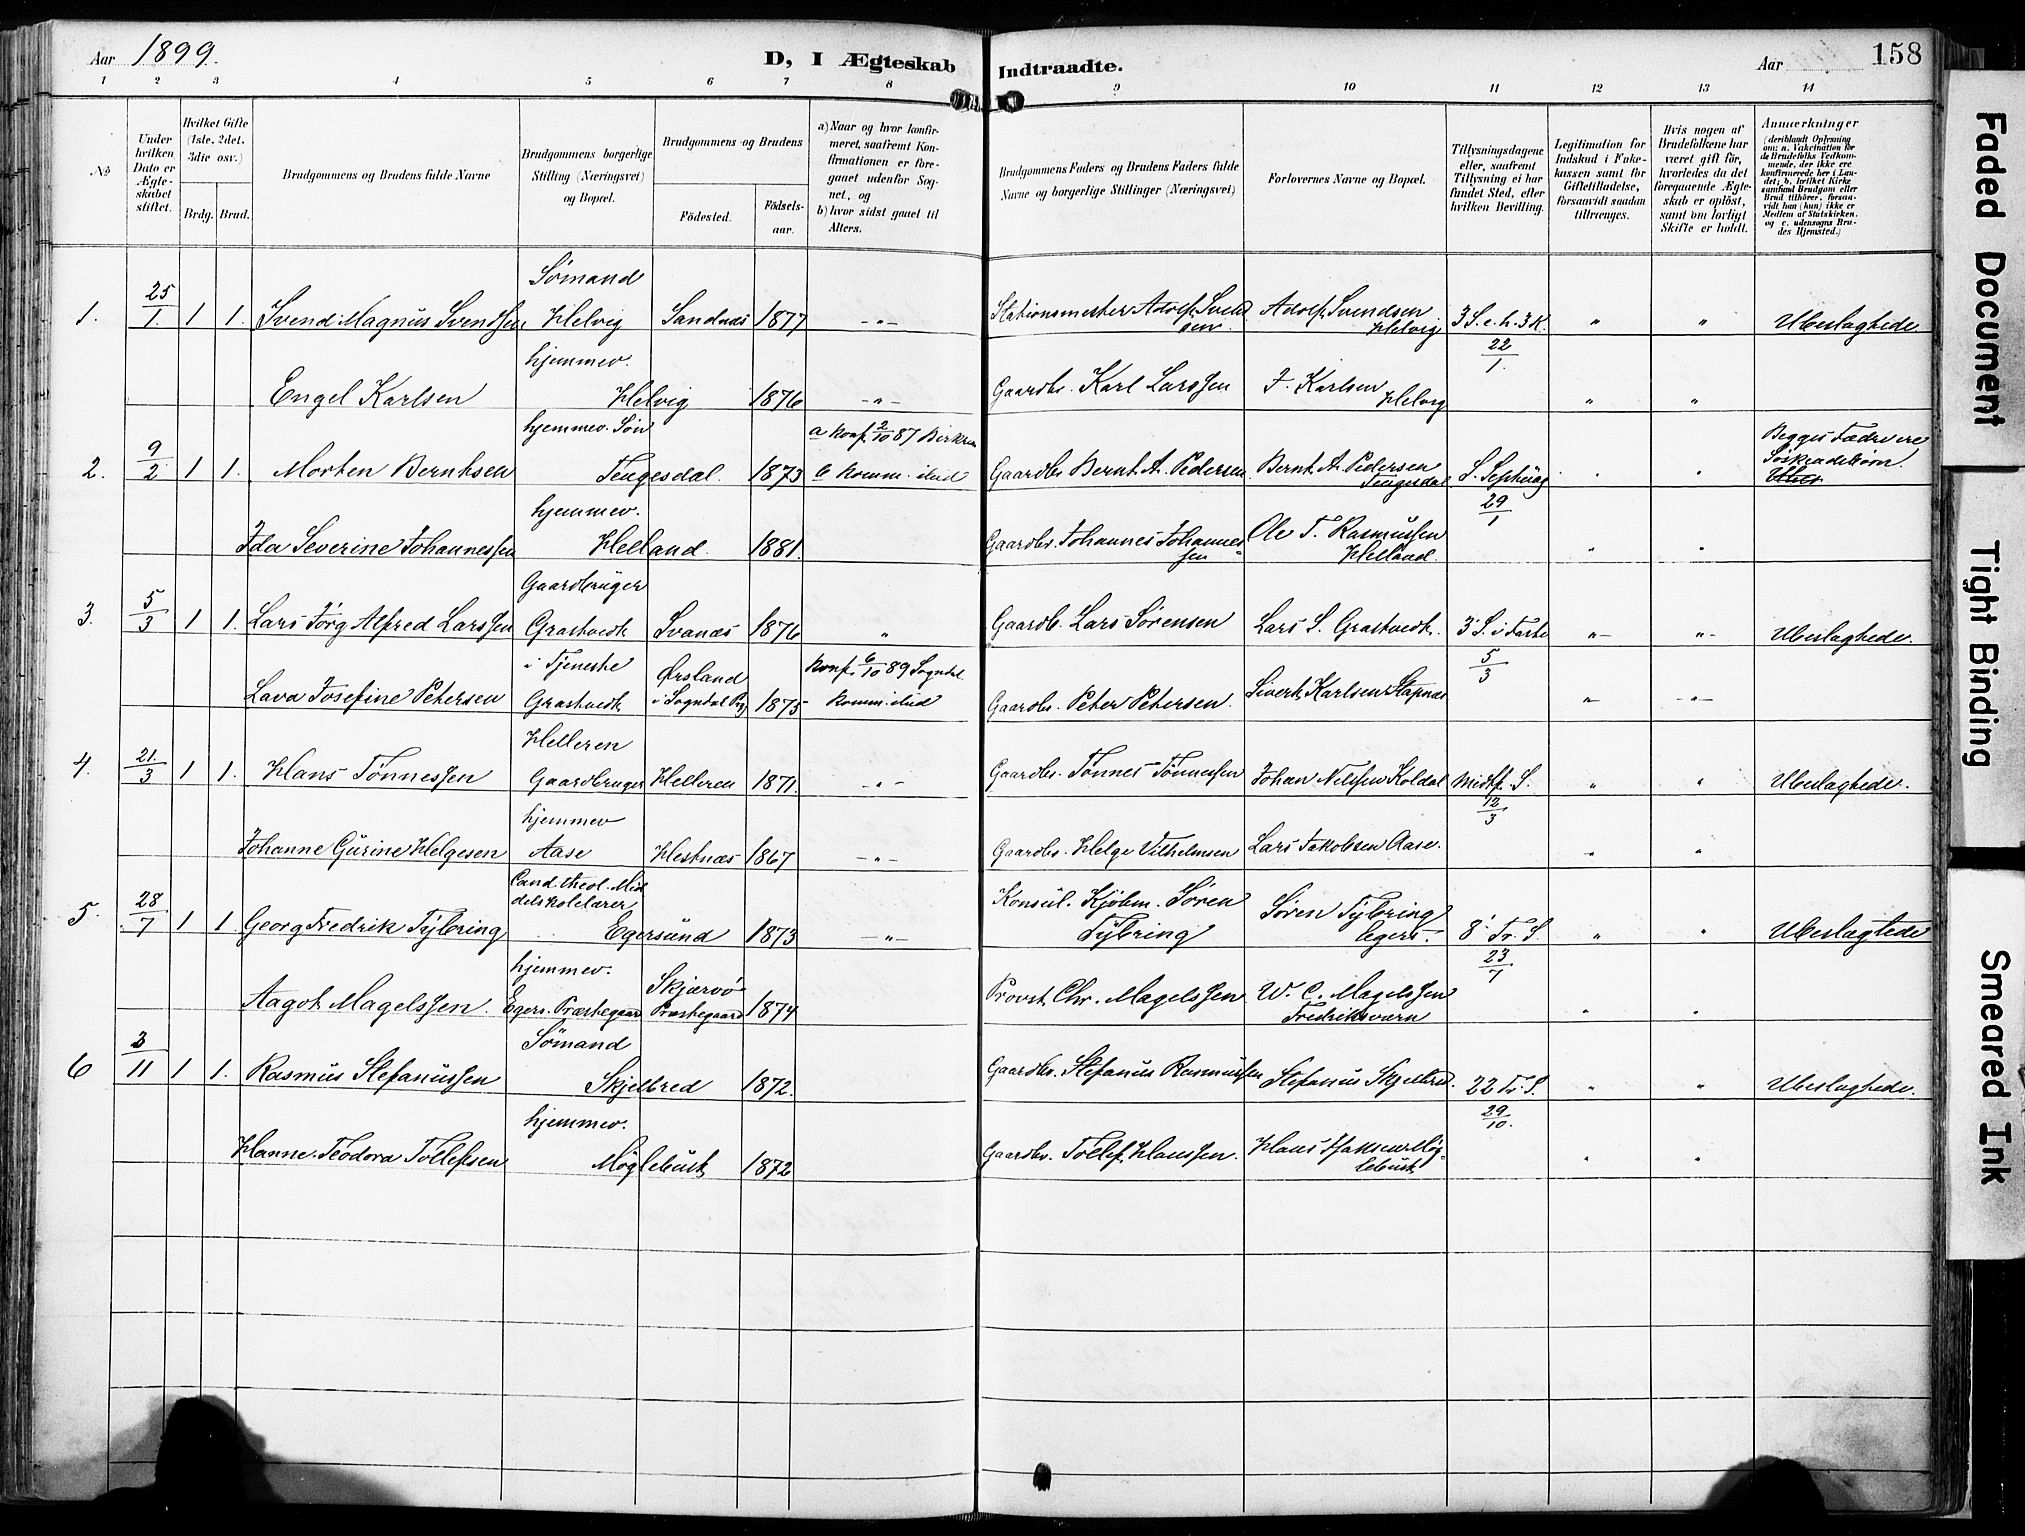 Aar 1899.
D, I Ægteskab
Indtraadte.
Aar
158
1 2 3 4 5 6 7 8 9 10 11 12 13 14
No
Under hvilken Dato er Ægteskabet stiftet.
Hvilket Gifte (1ste, 2det, 3die osv.)
Brdg. Brud.
Brudgommens og Brudens fulde Navne
Brudgommens borgerlige Stilling (Næringsvei) og Bopæl.
Brudgommens og Brudens
Fødested.
Fødselsaar.
a) Naar og hvor konfirmeret, saafremt Konfirmationen er foregaaet udenfor Sognet, og
b) hvor sidst gaaet til Alters.
Brudgommens Faders og Brudens Faders fulde Navne og borgerlige Stillinger (Næringsvei)
Forlovernes Navne og Bopæl.
Tillysningsdagene eller, saafremt Tillysning ei har fundet Sted, efter hvilken Bevilling.
Legitimation for Indskud i Enkekassen samt for Giftetilladelse, forsaavidt saadan tiltrænges.
Hvis nogen af Brudefolkene har været gift før, hvorledes da det foregaaende Ægteskab er opløst, samt om lovligt Skifte er holdt.
Anmærkninger
(deriblandt Oplysning om: a. Vakcination for de Brudefolks Vedkommende, der ikke ere konfirmerede her i Landet; b. hvilket Kirkesamfund Brudgom eller Brud tilhører, forsaavidt han (hun) ikke er Medlem af Statskirken, og c. udensogns Brudes Hjemsted.)
1. 25/1. 1 1. Svend Magnus Svendsen Sømand Helvig Sandnæs 1877 -"- Stationsmester Adolf Svendsen Adolf Svendsen Helvig 3 S. e. h. 3 K. 22/1. " " Ubeslagtede
Engel Karlsen hjemmev. Helvig 1876 -"- Gaardbr. Karl Larssen J. Karlsen Helvig " "
2. 9/2 1 1. Morten Berntsen hjemmev. Søn Tengesdal. 1873 a Konf. 2/10 87 b Komm. ilud Gaardbr. Bernt A. Pedersen Bernt A. Pedersen Tengesdal S. Septuag 29/1 " " Begges Fædre ere Søskendebørn.
Ida Severine Johannessen hjemmev. Helland. 1881. Gaardbr. Johannes Johannessen Ole T. Rasmussen Helland. " "
3. 5/3 1 1. Lars Jørg Alfred Larssen Gaardbruger Grastvedt Svanæs 1876 " Gaardb. Lars Sørensen Lars S. Grastvedt. 3 S. i Faste 5/3 "- "- Ubeslagtede.
Lava Josefine Petersen i Tjeneste Grastvedt Ørsland i Sogndal Pg 1875 Konf. 6/10 89 Sogndal Komm. ilud Gaardbr. Peter Petersen. Sivert Karlsen Stapnæs " -"-
4. 21./3 1 1. Hans Tønnessen Helleren Gaardbruger Helleren 1871. -"- Gaardbr. Tønnes Tønnessen Johan Nilssen Koldal Midtf. S. 12/3 " " Ubeslagtede.
Johanne Gurine Helgesen hjemmev Aase Hestnæs 1867 -"- Gaardbr. Helge Vilhelmsen Lars Jakobsen Aase. " "
5. 28/7 1 1. Georg Fredrik Tybring Cand. theol. Middelskolelærer Egersund 1873 -"- Konsul. Kjøbm. Søren Tybring Søren Tybring Egers. 8. Tr. S. 23/7 " " Ubeslagtede
Aagot Magelssen. hjemmev. Egers. Præstegaard Skjærvø Præstegaard 1874 Provst Chr. Magelssen W. C. Magelssen Fredriksværn " "
6 3/11 1 1. Rasmus Stefanussen Sømand Skjelbred 1872. Gaardbr. Stefanus Rasmussen Stefanus Skjelbred. 22 Tr. S. 29/10. " " Ubeslagtede.
Hanne Teodora Tollefsen hjemmev. Møglebust 1872 Gaardbr. Tollef Hanssen. Hans Isaksen Møglebust " "
Faded Document
Tight Binding
Smeared Ink